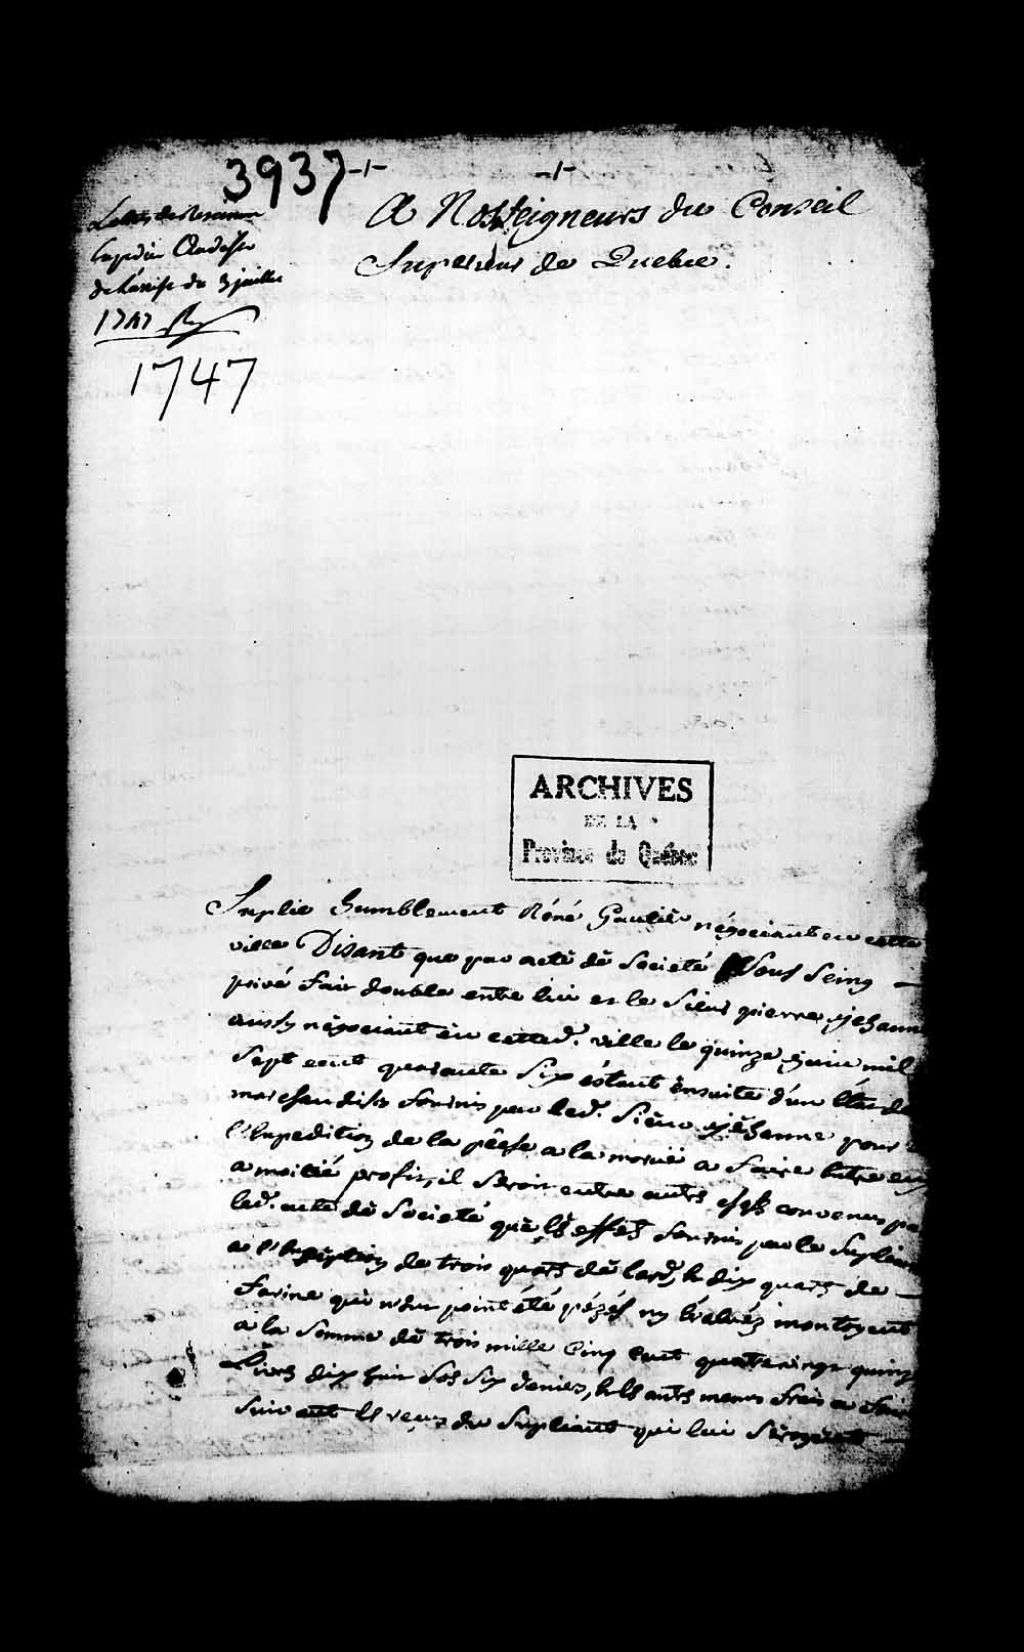 3937 -1-
-1-
A Nosseigneurs du Conseil
Superieur de Quebec.
de du 3 juillet
1747
1747
ARCHIVES
DE LA
Province de Québec
Suplie humblement Réné Gautier négociant en cette
ville Disant que par acte de Societé Sous Seing
privé fait double entre lui et le Sieur pierre jehanne
aussy négociant en cetted. ville le quinze juin mil
Sept cent quarante Six étant ensuite d'un État de
marchandises fournis par led. Sieur jehanne pour
l'Expedition de la pêche a la morue a faire entre eux
a moitié profit, il Seroit entre autres choses convenus par
led. acte de Societé que les effets fournis par le Supliant
a l'Exception de trois quarts de lard, & dix quarts de
farine qui n'ont point été pézés ny évalués montoyent
a la Somme de trois mille Cinq Cent quatrevingt quinze
Livres dix huit Sols Six deniers, & les autres menus frais a faire
Suivant les reçus du Supliant qui lui Seroyent